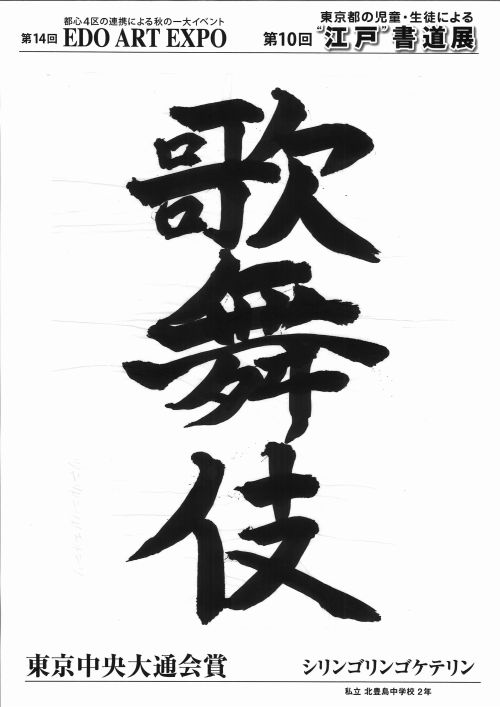 都心4区の連携による秋の一大イベント
第14回 EDO ART EXPO
東京都の児童・生徒による
第10回 "江戸"書道展
歌舞伎
東京中央大通会賞
シリンゴリンゴケテリン
私立 北豊島中学校 2年